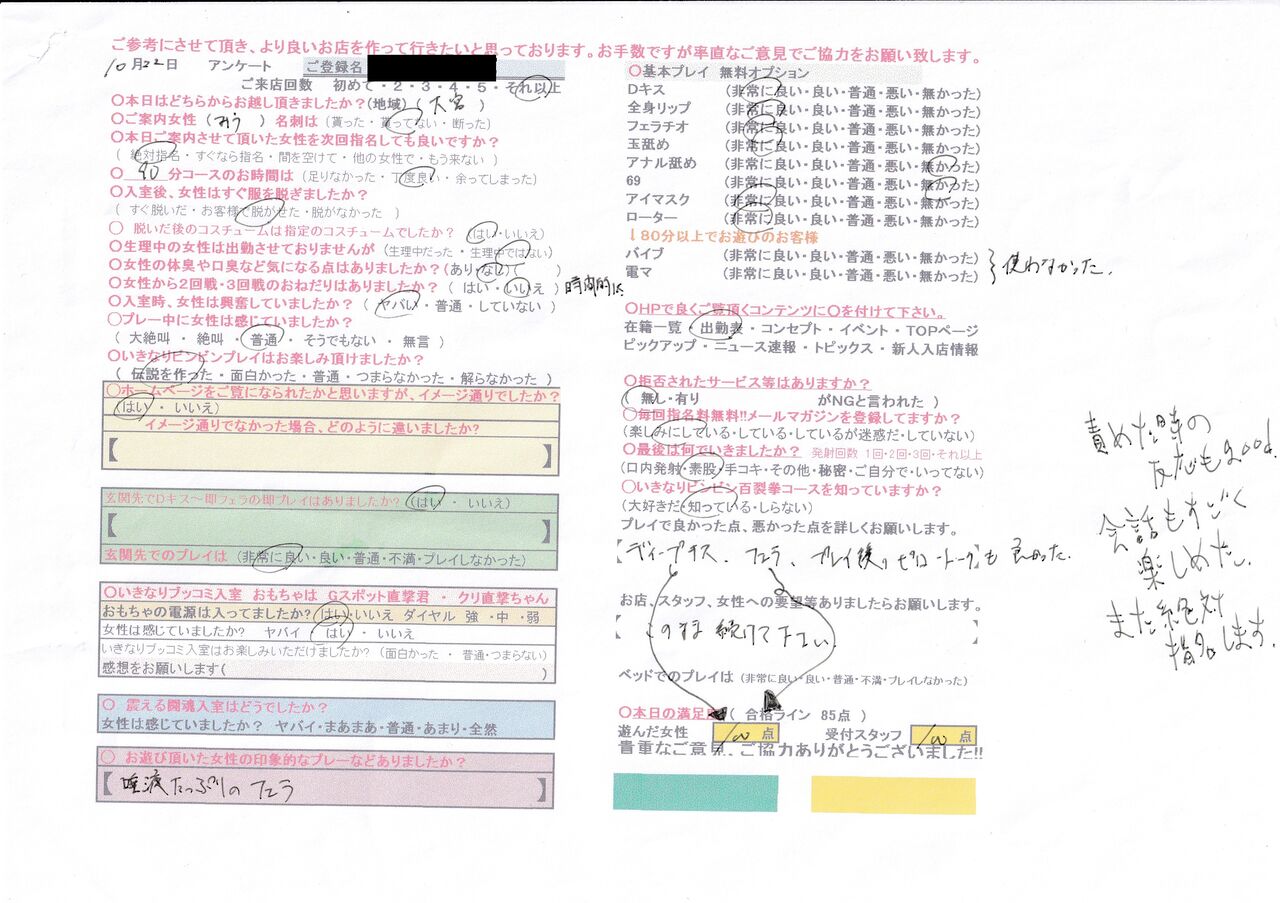 ご参考にさせて頂き、より良いお店を作って行きたいと思っております。お手数ですが率直なご意見でご協力をお願い致します。
10月22日 アンケート ご登録名
ご来店回数 初めて・2・3・4・5・それ以上
〇本日はどちらからお越し頂きましたか?(地域) ( 大宮 )
〇ご案内女性 ( ) 名刺は (貰った・貰ってない・断った)
〇本日ご案内させて頂いた女性を次回指名しても良いですか?
( 絶対指名・すぐなら指名・間を空けて・他の女性で・もう来ない )
〇 分コースのお時間は (足りなかった・丁度良い・余ってしまった)
〇入室後、女性はすぐ服を脱ぎましたか?
( すぐ脱いだ・お客様で脱がせた・脱がなかった )
〇 脱いだ後のコスチュームは指定のコスチュームでしたか? (はい・いいえ)
〇生理中の女性は出勤させておりませんが (生理中だった・生理中ではない)
〇女性の体臭や口臭など気になる点はありましたか?(あり・なし)( )
〇女性から2回戦・3回戦のおねだりはありましたか? ( はい・いいえ ) 時間的に
〇入室時、女性は興奮していましたか? ( ヤバい・普通・していない )
〇プレー中に女性は感じていましたか?
( 大絶叫 ・ 絶叫 ・ 普通 ・ そうでもない ・ 無言 )
〇いきなりビンビンプレイはお楽しみ頂けましたか?
( 伝説を作った・面白かった・普通・つまらなかった・解らなかった )
〇ホームページをご覧になられたかと思いますが、イメージ通りでしたか?
(はい ・ いいえ)
イメージ通りでなかった場合、どのように違いましたか?
【 】
玄関先でDキス～即フェラの即プレイはありましたか? (はい ・ いいえ)
【 】
玄関先でのプレイは (非常に良い・良い・普通・不満・プレイしなかった)
〇いきなりブッコミ入室 おもちゃは Gスポット直撃君 ・ クリ直撃ちゃん
おもちゃの電源は入ってましたか? はい・いいえ ダイヤル 強 ・中 ・弱
女性は感じていましたか? ヤバイ ・ はい ・ いいえ
いきなりブッコミ入室はお楽しみいただけましたか? (面白かった ・ 普通・つまらない)
感想をお願いします( )
〇 震える闘魂入室はどうでしたか?
女性は感じていましたか? ヤバイ・まあまあ・普通・あまり・全然
〇 お遊び頂いた女性の印象的なプレーなどありましたか?
【 唾液たっぷりのフェラ 】
〇基本プレイ 無料オプション
Dキス (非常に良い・良い・普通・悪い・無かった)
全身リップ (非常に良い・良い・普通・悪い・無かった)
フェラチオ (非常に良い・良い・普通・悪い・無かった)
玉舐め (非常に良い・良い・普通・悪い・無かった)
アナル舐め (非常に良い・良い・普通・悪い・無かった)
69 (非常に良い・良い・普通・悪い・無かった)
アイマスク (非常に良い・良い・普通・悪い・無かった)
ローター (非常に良い・良い・普通・悪い・無かった)
↓80分以上でお遊びのお客様
バイブ (非常に良い・良い・普通・悪い・無かった)
電マ (非常に良い・良い・普通・悪い・無かった)
使わなかった.
〇HPで良くご覧頂くコンテンツに〇を付けて下さい。
在籍一覧 ・ 出勤表 ・ コンセプト ・ イベント ・ TOPページ
ピックアップ ・ ニュース速報 ・ トピックス ・ 新人入店情報
〇拒否されたサービス等はありますか?
( 無し・有り がNGと言われた )
〇毎回指名料無料!!メールマガジンを登録してますか?
(楽しみにしている・している・しているが迷惑だ・していない)
〇最後は何でいきましたか? 発射回数 1回・2回・3回・それ以上
(口内発射・素股・手コキ・その他・秘密・ご自分で・いってない)
〇いきなりビンビン百裂拳コースを知っていますか?
(大好きだ・知っている・しらない)
プレイで良かった点、悪かった点を詳しくお願いします。
ディープキス、フェラ、プレイ後のピロートークも良かった.
お店、スタッフ、女性への要望等ありましたらお願いします。
このまま続けて下さい.
ベッドでのプレイは (非常に良い・良い・普通・不満・プレイしなかった)
〇本日の満足度 ( 合格ライン 85点 )
遊んだ女性 100 点 受付スタッフ 100 点
貴重なご意見、ご協力ありがとうございました!!
責めた時の
反応もgood.
会話もすごく
楽しめた.
また絶対
指名します.